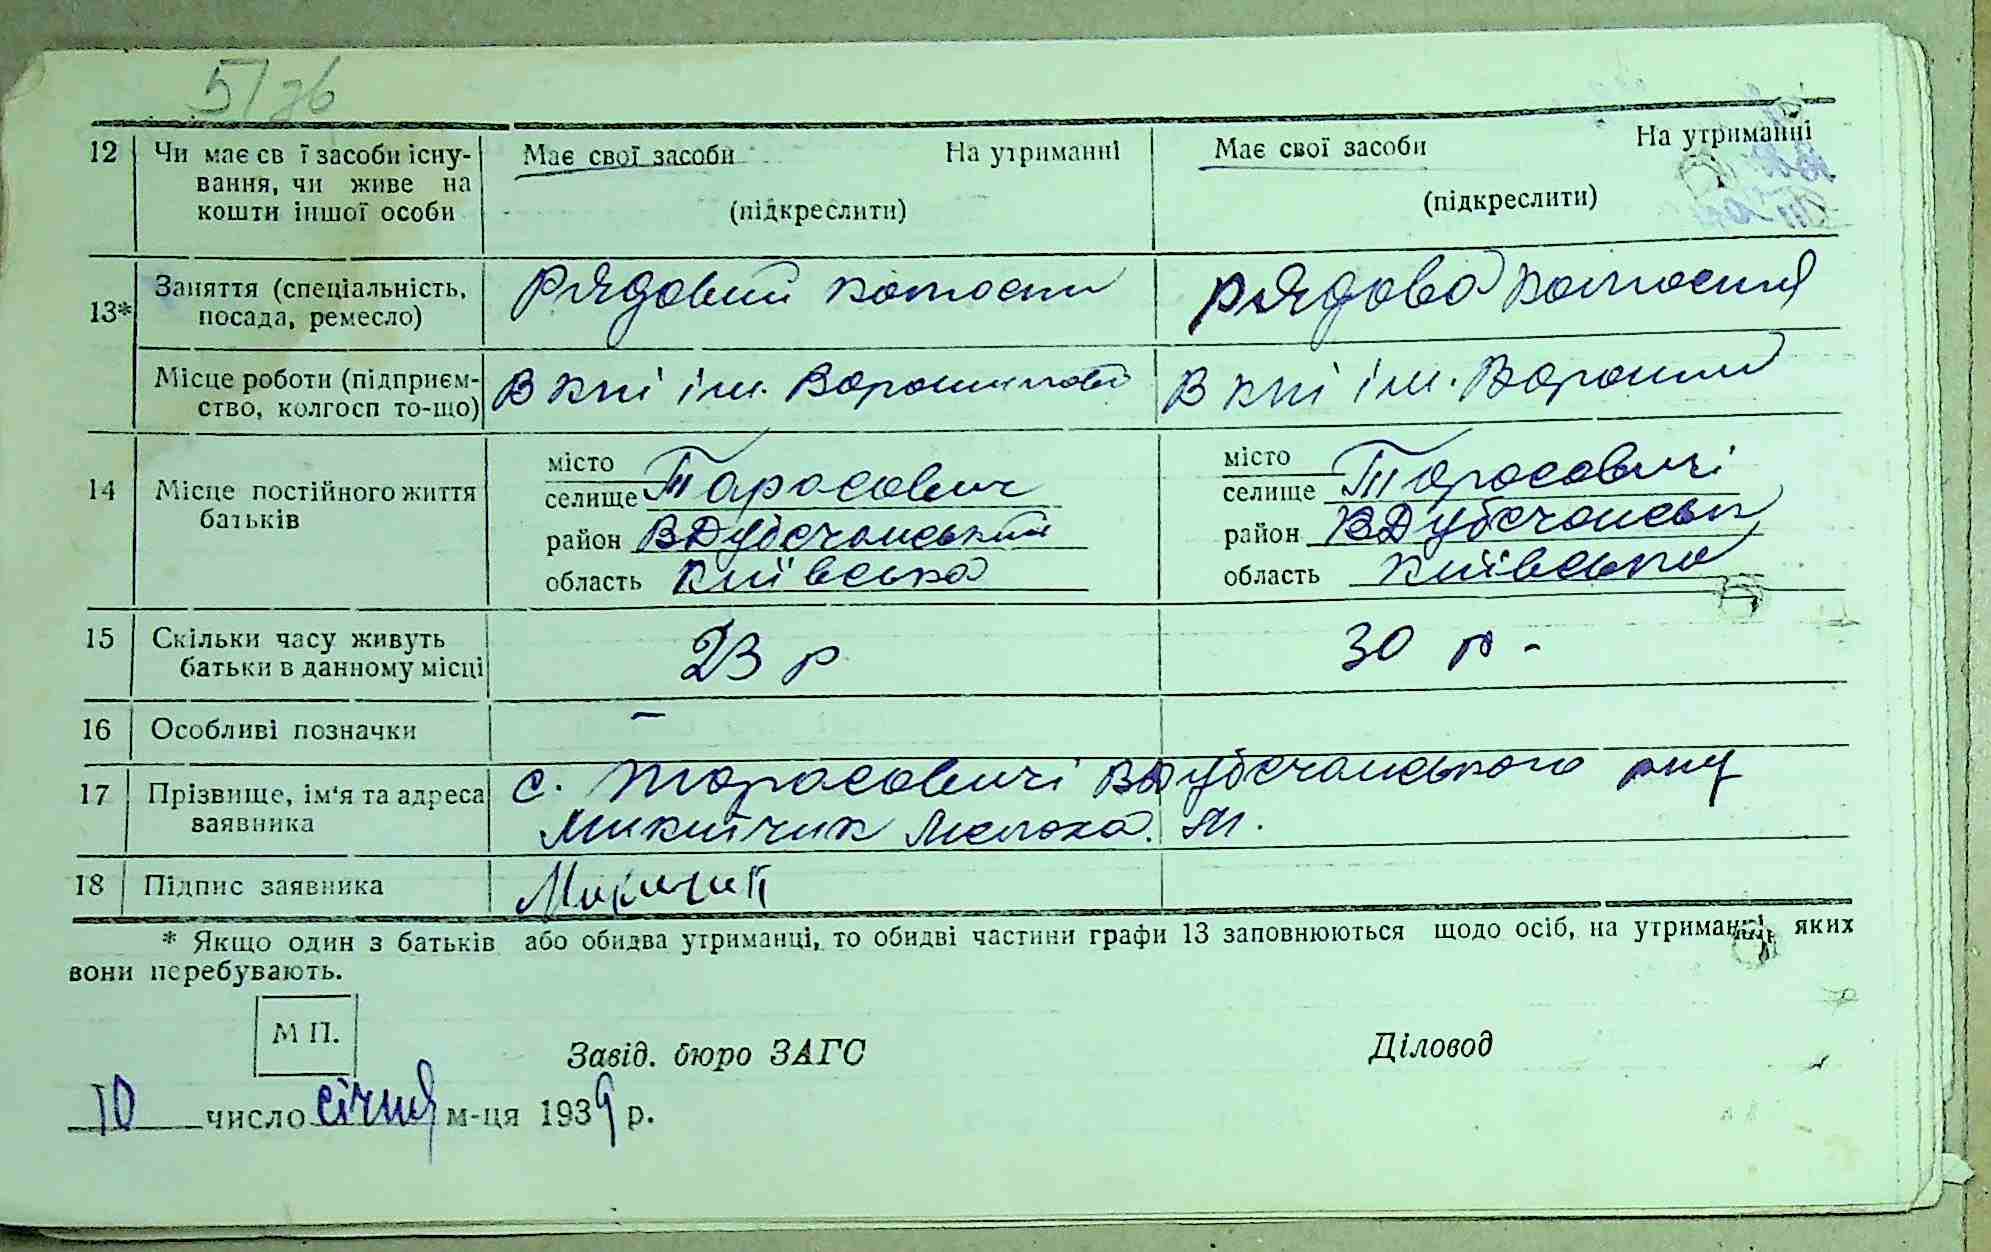 5/зв
12 Чи має св ї засоби існу- Має свої засоби На утриманні Має свої засоби На утриманні
вання, чи живе на
кошти іншої особи (підкреслити) (підкреслити)
13* Заняття (спеціальність, Рядовий рядова
посада, ремесло)
Місце роботи (підприєм- В к-пі ім. Ворошилова В к-пі ім.Ворошил
ство, колгосп то-що)
14 Місце постійного життя батьків
місто
селище Тарасович
район ВДубечанський
область Київська
місто
селище Тарасовичі
район ВДубечанськ
область Київська
15 Скільки часу живуть 23 р 30 р -
батьки в данному місці
16 Особливі позначки –
17 Прізвище, ім'я та адреса с. Тарасовичі ВДубечанського р-ну
заявника Микитчик М.
18 Підпис заявника
* Якщо один з батьків або обидва утриманці, то обидві частини графи 13 заповнюються щодо осіб, на утриманні, яких
вони перебувають.
М П.
Завід. бюро ЗАГС Діловод
10 число січня м-ця 1939 р.